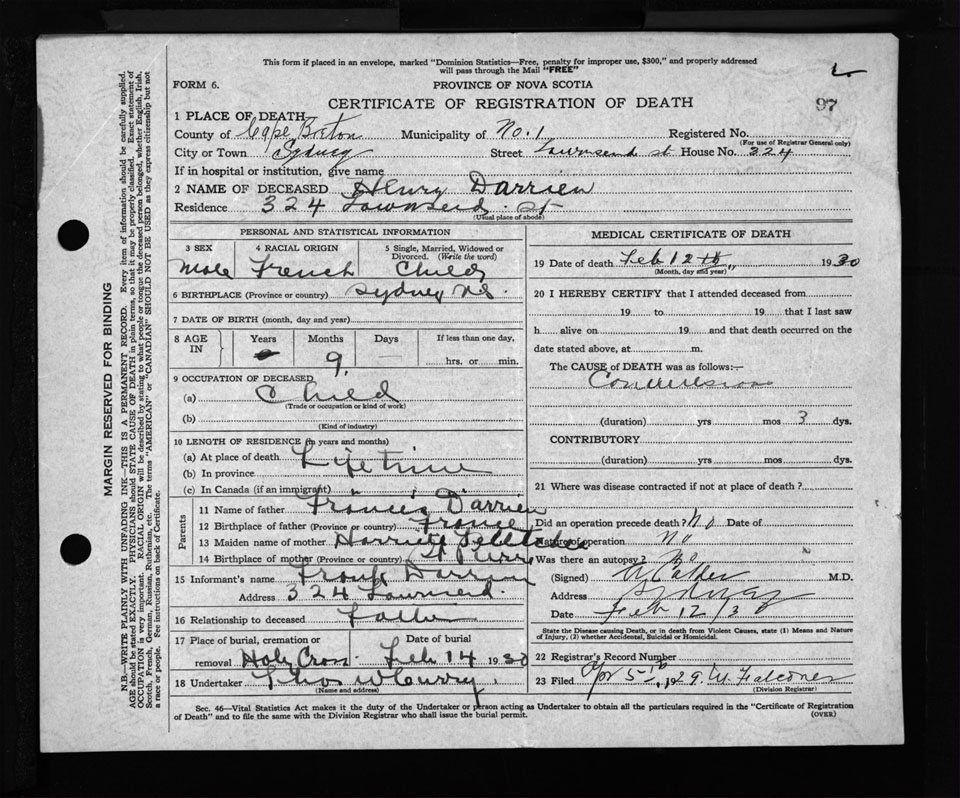 This form if placed in an envelope, marked "Dominion Statistics—Free, penalty for improper use, $300," and properly addressed
will pass through the Mail "FREE"
FORM 6.
PROVINCE OF NOVA SCOTIA
97
CERTIFICATE OF REGISTRATION OF DEATH
1 PLACE OF DEATH
County of Cape Breton Municipality of No. 1 Registered No.
(For use of Registrar General only)
City or Town Sydney Street Townsend st House No. 324
If in hospital or institution, give name
2 NAME OF DECEASED Henry Darrien
Residence 324 Townsend st
(Usual place of abode)
PERSONAL AND STATISTICAL INFORMATION
3 SEX 4 RACIAL ORIGIN 5 Single, Married, Widowed or
Divorced. (Write the word)
Male French Child
6 BIRTHPLACE (Province or country) Sydney N.S.
7 DATE OF BIRTH (month, day and year)
8 AGE IN Years Months Days If less than one day,
9 hrs. or min.
9 OCCUPATION OF DECEASED
(a) Child
(Trade or occupation or kind of work)
(b)
(Kind of industry)
10 LENGTH OF RESIDENCE (in years and months)
(a) At place of death Lifetime
(b) In province
(c) In Canada (if an immigrant)
Parents
11 Name of father Francis Darrien
12 Birthplace of father (Province or country) France
13 Maiden name of mother Harriet
14 Birthplace of mother (Province or country) St Pierre
15 Informant's name Frank Darrien
Address 324 Townsend.
16 Relationship to deceased Father
17 Place of burial, cremation or Date of burial
removal Holy Cross Feb 14 1930
18 Undertaker Thos W Curry
(Name and address)
MEDICAL CERTIFICATE OF DEATH
19 Date of death Feb 12th 1930
(Month, day and year)
20 I HEREBY CERTIFY that I attended deceased from
19 to 19 that I last saw
h alive on 19 and that death occurred on the
date stated above, at m.
The CAUSE of DEATH was as follows:—
Convulsions
(duration) yrs mos 3 dys.
CONTRIBUTORY
(duration) yrs. mos. dys.
21 Where was disease contracted if not at place of death?
Did an operation precede death? No Date of
Nature of operation No
Was there an autopsy? No
(Signed) A Calder M.D.
Address Sydney
Date Feb 12/3
State the Disease causing Death, or in death from Violent Causes, state (1) Means and Nature
of Injury, (2) whether Accidental, Suicidal or Homicidal.
22 Registrar's Record Number
23 Filed Apr 5th
(Division Registrar)
Sec. 46—Vital Statistics Act makes it the duty of the Undertaker or person acting as Undertaker to obtain all the particulars required in the "Certificate of Registration
of Death" and to file the same with the Division Registrar who shall issue the burial permit.
(OVER)
MARGIN RESERVED FOR BINDING
N.B.—WRITE PLAINLY WITH UNFADING INK—THIS IS A PERMANENT RECORD. Every item of information should be carefully supplied.
AGE should be stated EXACTLY. PHYSICIANS should STATE CAUSE OF DEATH in plain terms, so that it may be properly classified. Exact statement of
OCCUPATION is very important. RACIAL ORIGIN will be described by stating to what people or tongue the deceased person belonged, whether English, Irish,
Scotch, French, German, Russian, Ruthenian, etc. The terms "AMERICAN" or "CANADIAN" SHOULD NOT BE USED as they express citizenship but not
a race or people. See instructions on back of Certificate.